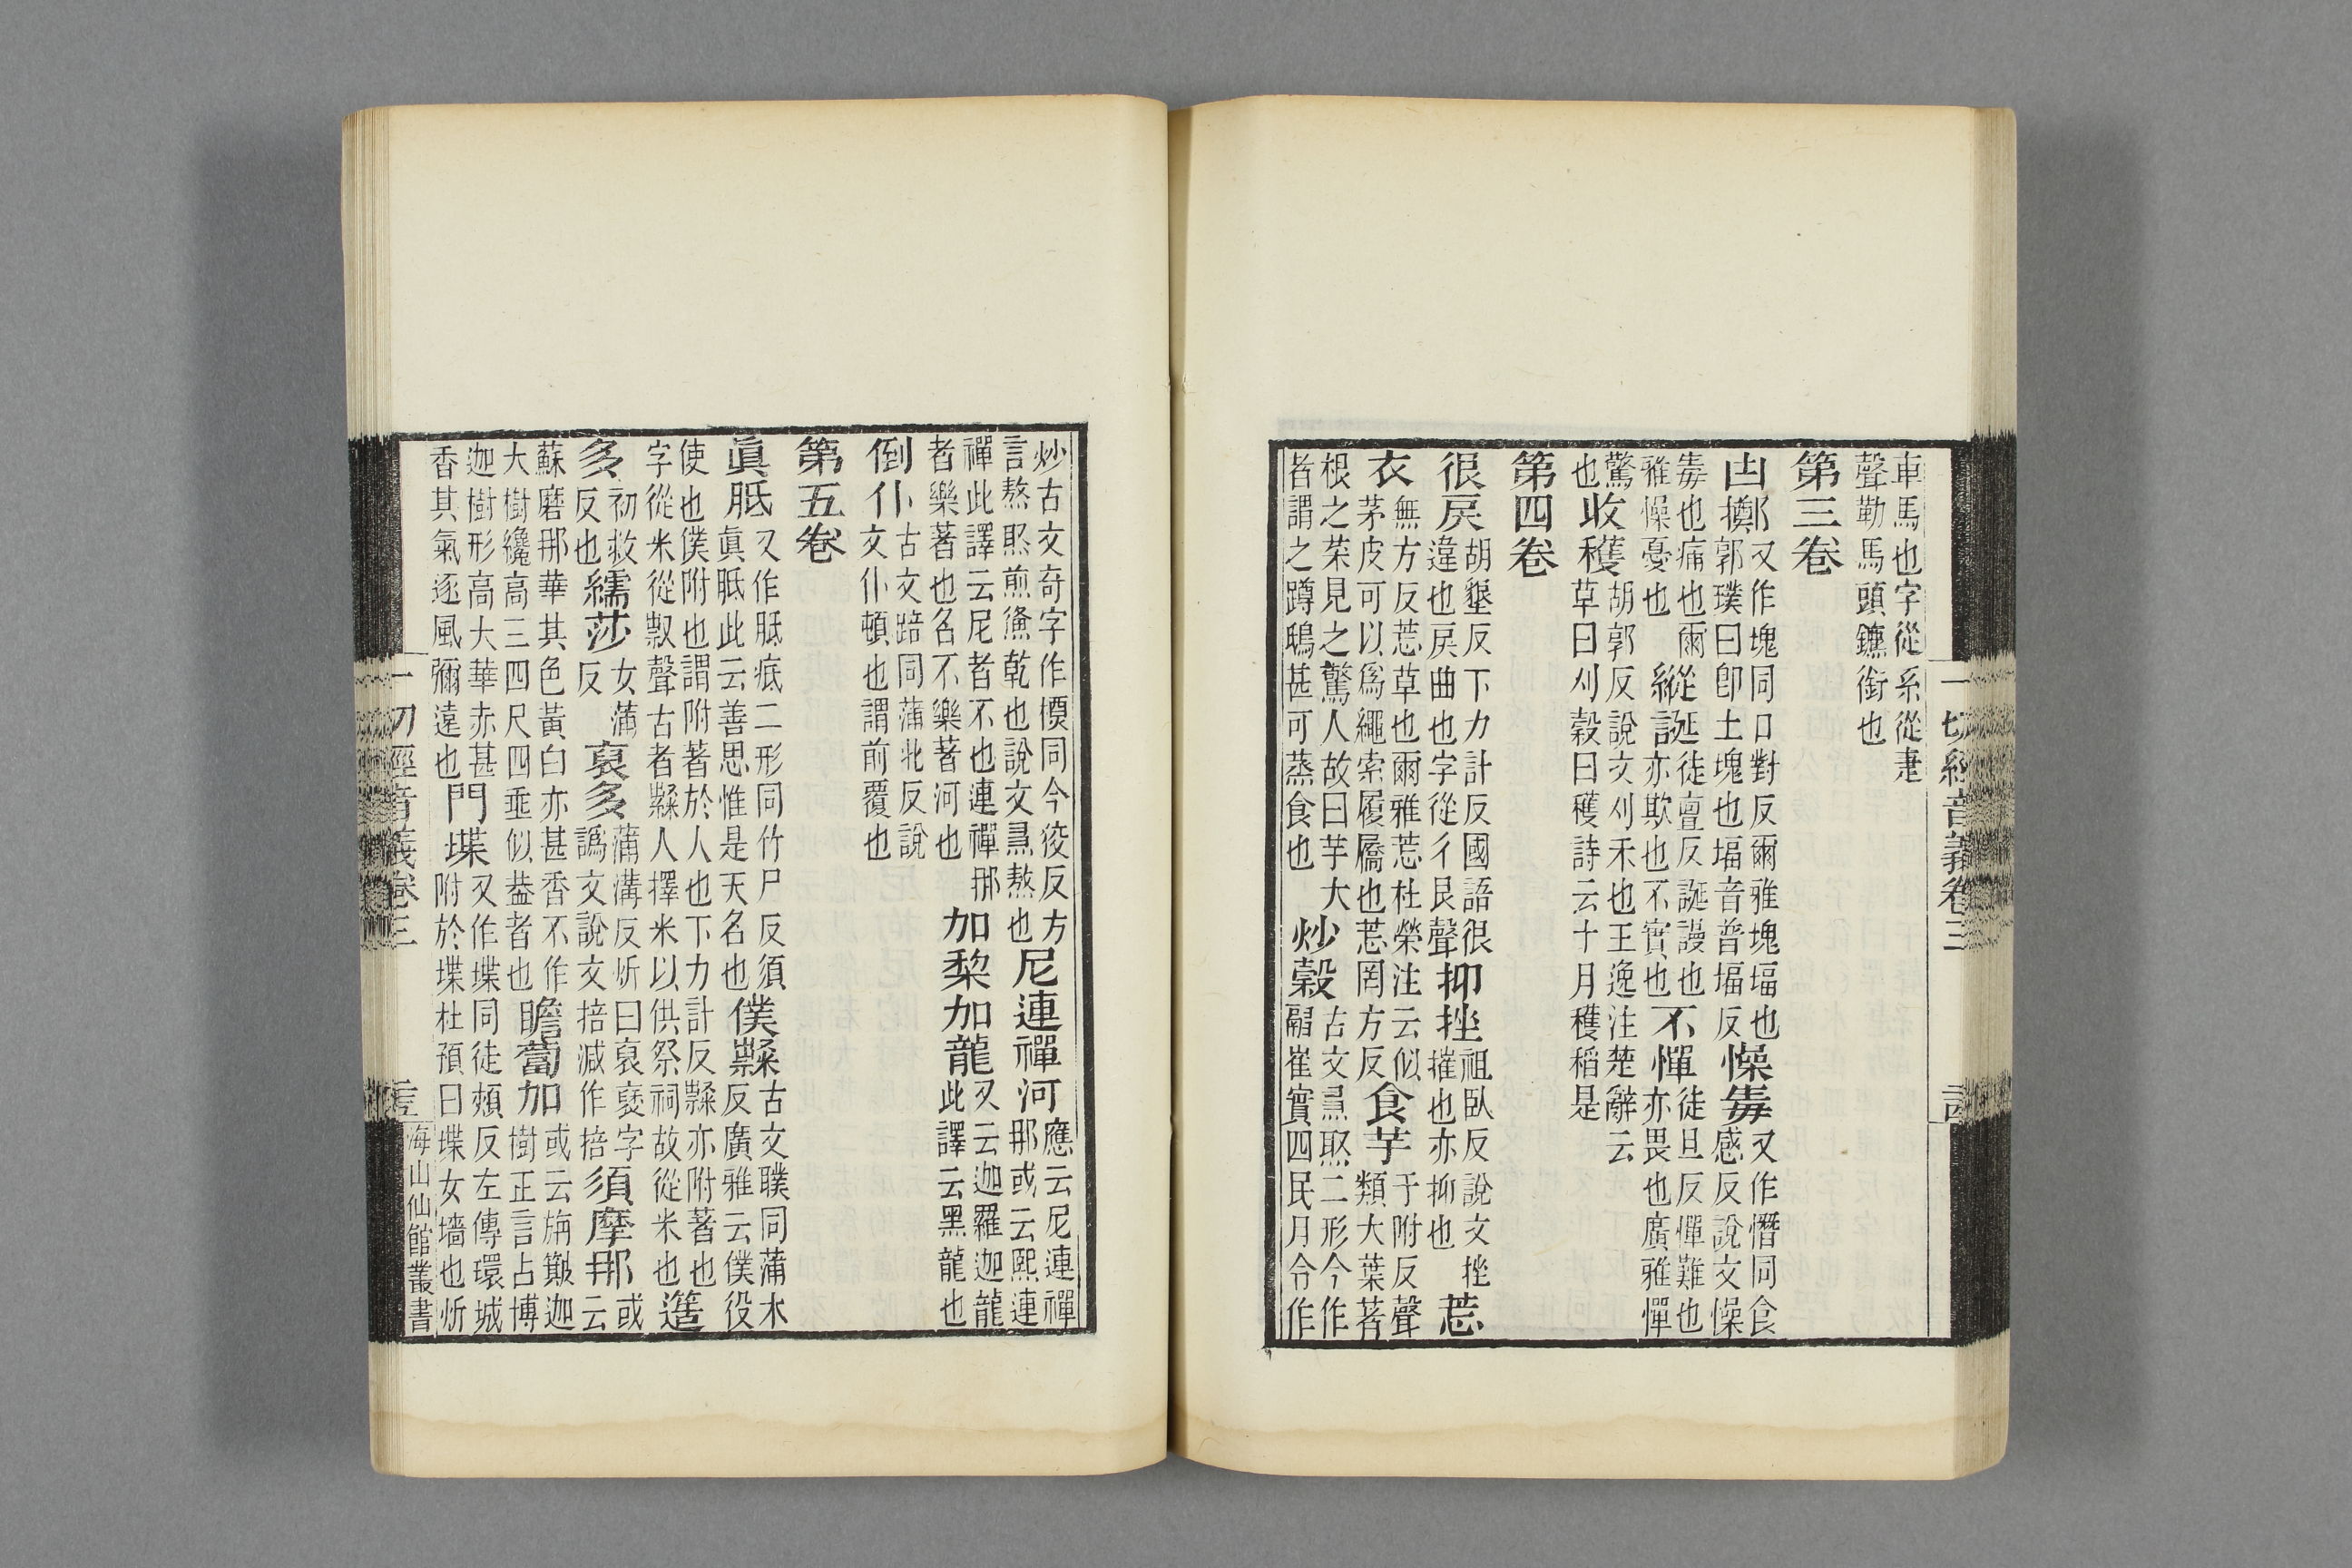 車馬也字從系從疌
聲勒馬頭鑣銜也
第三卷
凷擲又作塊同口對反爾雅塊堛也
郭璞曰卽土塊也堛音普堛反
懆毒又作憯同食
感反說文懆
毒也痛也爾
雅懆憂也
縱誕徒亶反誕謾也
亦欺也不實也
不憚徒旦反憚難也
亦畏也廣雅憚
驚
也
收穫胡郭反說文刈禾也王逸注楚辭云
草曰刈穀曰穫詩云十月穫稻是
第四卷
很戾胡墾反下力計反國語很
違也戾曲也字從彳艮聲
抑挫祖臥反說文挫
摧也亦抑也
莣
衣無方反莣草也爾雅莣杜榮注云似
茅皮可以爲繩索履屩也莣罔方反
食芋于附反聲
類大葉著
根之菜見之驚人故曰芋大
者謂之蹲鴟甚可蒸食也
炒穀古文䰞焣二形今作
䰞崔實四民月令作
炒古文奇字作㷅同今䂊反方
言熬焣煎㷶乾也說文䰞熬也
尼連禪河應云尼連禪
那或云熙連
禪此譯云尼者不也連禪那
者樂著也名不樂著河也
加棃加龍又云迦羅迦龍
此譯云黑龍也
倒仆古文踣同蒲北反說
文仆頓也謂前覆也
第五卷
眞胝又作胝疷二形同竹尸反須
眞胝此云善思惟是天名也
僕隸古文䑑同蒲木
反廣雅云僕役
使也僕附也謂附著於人也下力計反隸亦附著也
字從米從𣪍聲古者隸人擇米以供祭祠故從米也
簉
多初救
反也
繻莎女蒲
反
裒多蒲溝反斦曰裒襃字
譌文說文掊減作掊
須摩那或
云
蘇磨那華其色黃白亦甚香不作
大樹纔高三四尺四垂似葢者也
瞻蔔加或云旃簸迦
樹正言占博
迦樹形高大華赤甚
香其氣逐風彌遠也
門堞又作堞同徒頰反左傳環城
附於堞杜預曰堞女墻也斦
一切經音義卷三
海山仙館叢書